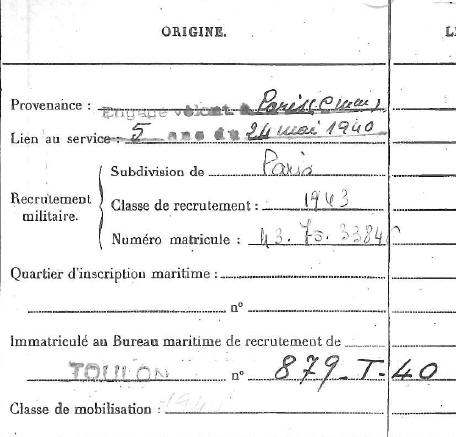 ORIGINE.
Provenance : Engagé volont à Paris
Lien au service : 5 ans du 24 mai 1940
Recrutement militaire.
Subdivision de Paris
Classe de recrutement : 1943
Numéro matricule : 43. 75. 3384
Quartier d'inscription maritime :
nº
Immatriculé au Bureau maritime de recrutement de
TOULON nº 879-T-40
Classe de mobilisation :